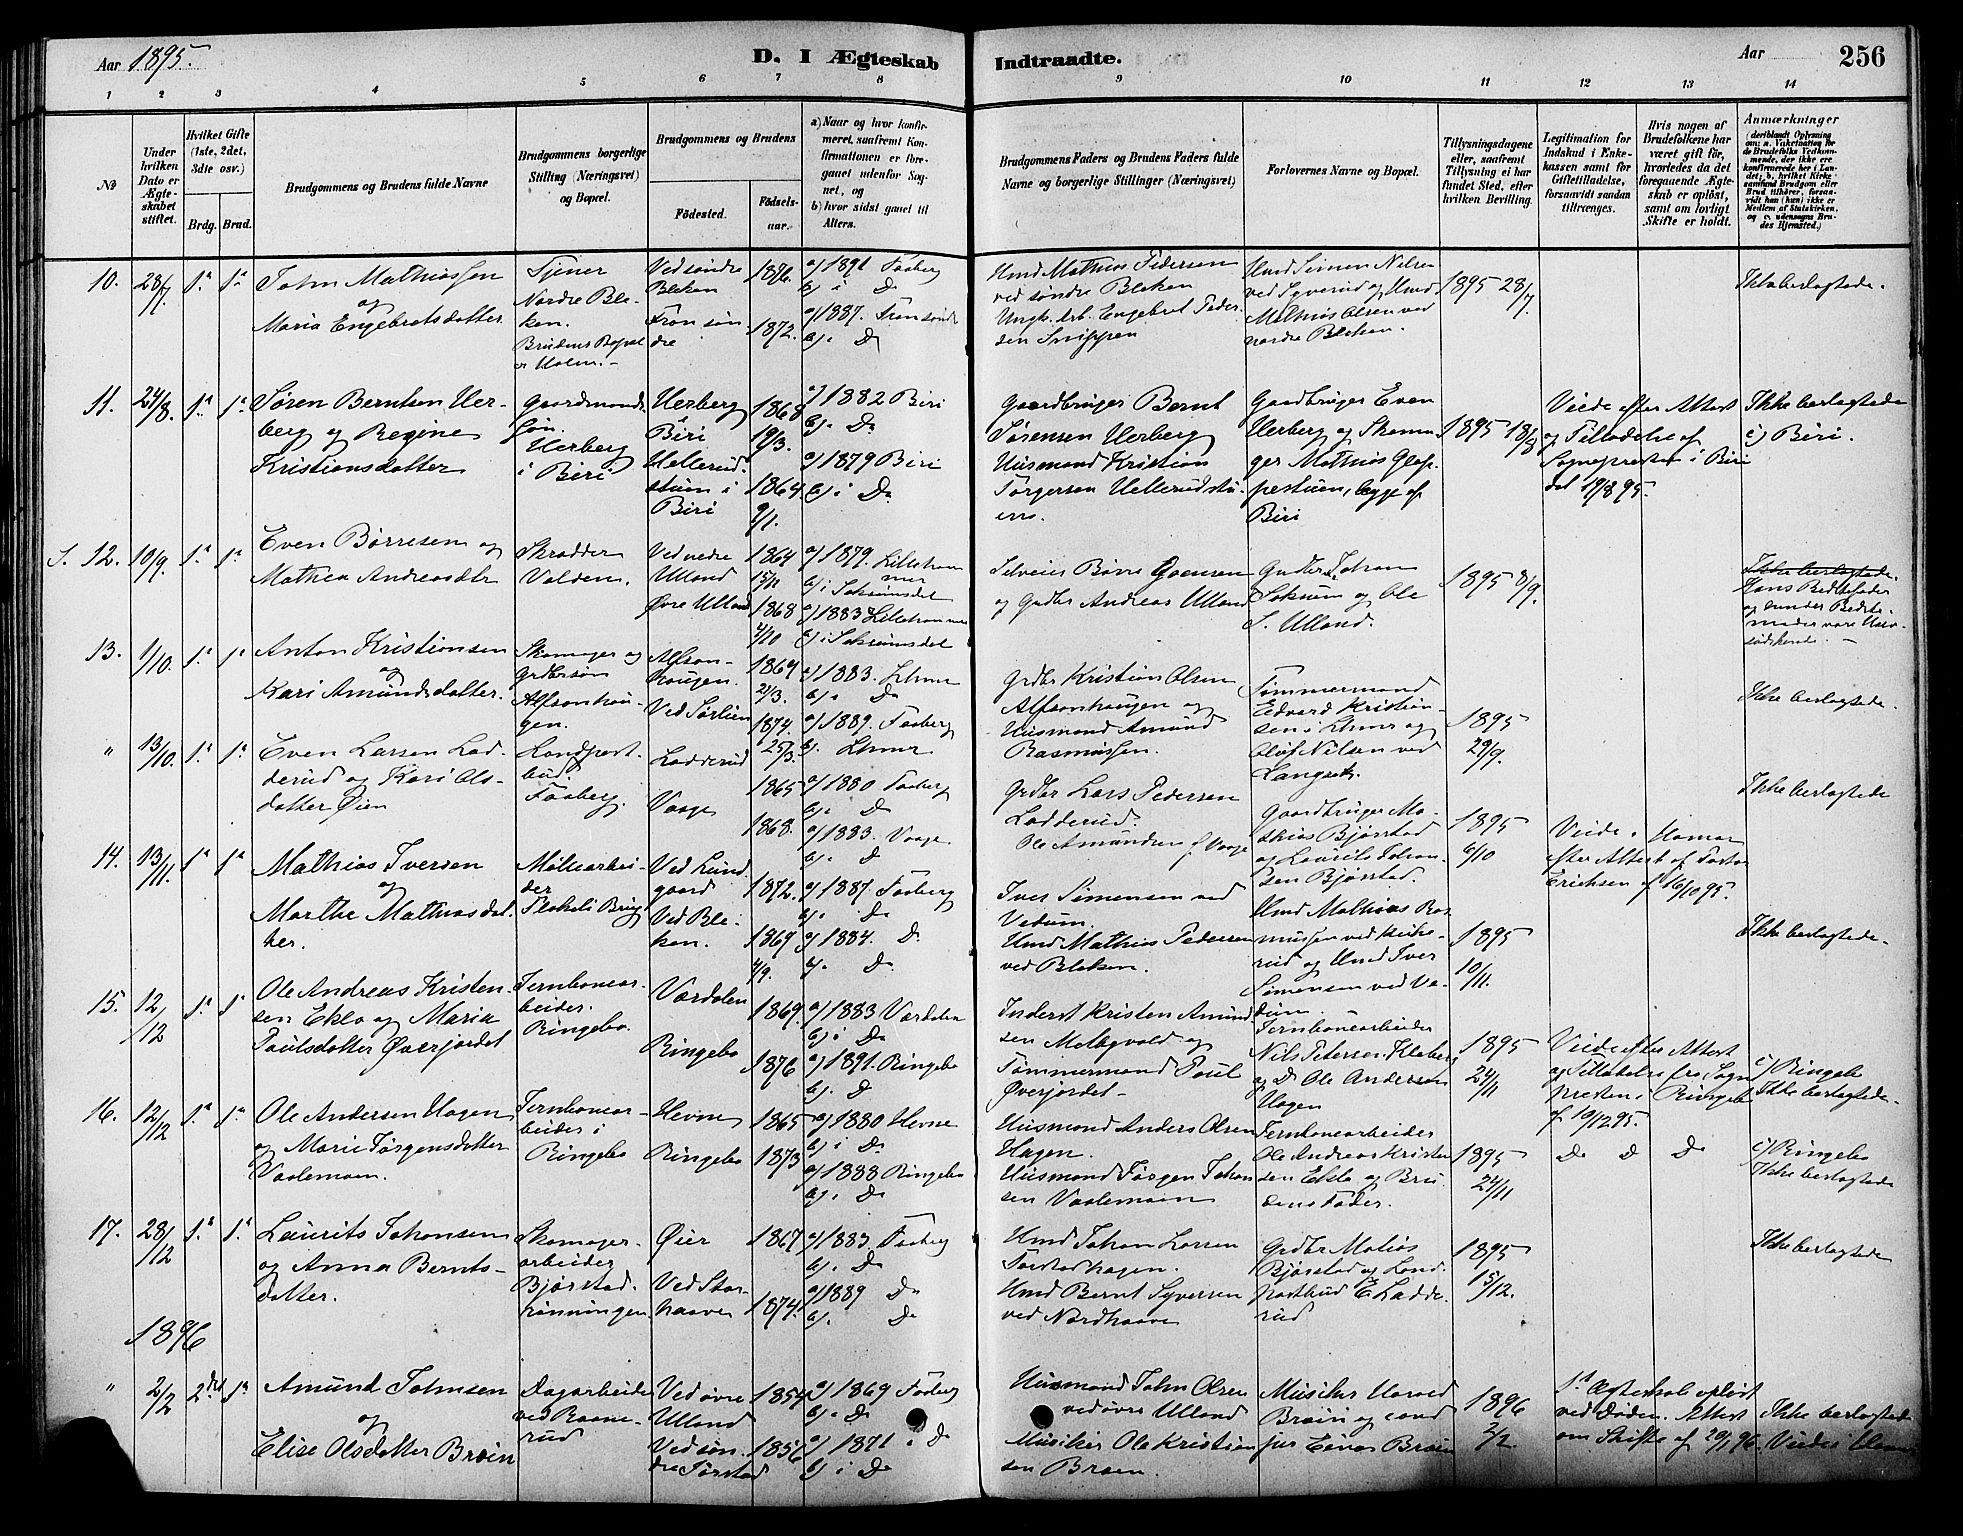 Aar 1895.
D. I Ægteskab
Indtraadte.
Aar
256
1 2 3 4 5 6 7 8 9 10 11 12 13 14
No
Under hvilken Dato er Ægteskabet stiftet.
Hvilket Gifte (1ste, 2det, 3die osv.)
Brdg. Brud.
Brudgommens og Brudens fulde Navne
Brudgommens borgerlige Stilling (Næringsvei) og Bopæl.
Brudgommens og Brudens
Fødested.
Fødselsaar.
a) Naar og hvor konfirmeret, saafremt Konfirmationen er foregaaet udenfor Sognet, og
b) hvor sidst gaaet til Alters.
Brudgommens Faders og Brudens Faders fulde Navne og borgerlige Stillinger (Næringsvei)
Forlovernes Navne og Bopæl.
Tillysningsdagene eller, saafremt Tillysning ei har fundet Sted, efter hvilken Bevilling.
Legitimation for Indskud i Enkekassen samt for Giftetilladelse, forsaavidt saadan tiltrænges.
Hvis nogen af Brudefolkene har været gift før, hvorledes da det foregaaende Ægteskab er opløst, samt om lovligt Skifte er holdt.
Anmærkninger (deriblandt Oplysning om: a. Vaksination for de Brudefolks Vedkommende, der ikke ere konfirmerede her i Landet; b. hvilket Kirkesamfund Brudgom eller Brud tilhører, forsaavidt han (hun) ikke er Medlem af Statskirken, og c. udensogns Brudes Hjemsted.)
10. 28/7. 1ste 1ste
John Mathiassen
og
Maria Engebretsdatter
Tjener
Nordre Bleken.
Brudens Bopæl er Holm.
Ved søndre Bleken 1876.
Fron søndre 1872.
a) 1891 Faaberg
b) i Do
a) 1887. Fron søndre
b) i Do
Hmd Mathias Pedersen
ved søndre Bleken
Ungk. Arb. Engebret Pedersen Snippen
Hmd Simen Nilsen
ved Syverud og Hmd
Mathias Olsen ved
nordre Bleken.
1895 28/7.
Ikke beslægtede.
11. 24/8. 1ste 1ste
Søren Berntsen Herberg og Regine
Kristiansdatter
Gaardmandssøn.
Herberg
i Biri
Herberg
Biri 1868 19/3.
Hellerudstuen i
Biri 1864 9/1.
a) 1882 Biri
b) i Do
a) 1879 Biri
b) i Do
Gaardbruger Bernt
Sørensen Herberg
Husmand Kristian
Torgersen Hellerudstuen.
Gaardbruger Even
Herberg og Skomager Mathias Glæppestuen, begge af
Biri
1895 18/8
Viede efter Attest
og Tilladelse af
Sognepresten i Biri
dat 19/8 95.
Ikke beslægtede
c) Biri.
S. 12. 10/9. 1ste 1ste
Even Børresen og
Mathea Andreasdtr
Skrædder
Volden.
Ved nedre
Ulland 1864 15/11
Øvre Ulland 1868 4/10
a) 1879. Lillehammer
b) i Saksumsdal
a) 1883 Lillehammer
b) i Saksumsdal
Selveier Børre Evensen
og Grdbr Andreas Ulland
Grdbr Johan
Saksum og Ole
S. Ulland.
1895 8/9.
Ikke beslægtede.
Hans Bedstefader
og hendes Bedstemoder vare Halvsødskende.
13. 1/10. 1ste 1ste
Anton Kristiansen
og
Kari Amundsdatter.
Skomager og
Grdbrsøn
Alfsonhaugen.
Alfsonhaugen. 1864 21/3.
Ved Sørlien 1874. 25/3
a) 1883. Lhmr
b) i Do
a) 1889. Faaberg
b). Lhmr
Grdbr Kristian Olsen
Alfsonhaugen og
Husmand Amund
Rasmussen.
Tømmermand
Edvard Kristiansen i Lhmr og
Oluf Nilsen ved
Langset.
1895
29/9.
Ikke beslægtede.
" 13/10. 1ste 1ste
Even Larsen Ladderud og Kari Olsdatter Øien
Landpostbud.
Faaberg.
Ladderud 1865
Vaage 1868.
a) 1880 Faaberg
b). Do
a) 1883. Vaage
b). Do
Grdbr Lars Pedersen
Ladderud.
Ole Amundsen f Vaage
Gaardbruger Mathias Bjørstad
og Laurits Johansen Bjørstad.
1895
6/10
Viede i Hamar
efter Attest af Pastor
Erichsen af 16/10 95.
Ikke beslægtede
14. 13/11. 1ste 1ste
Mathias Iversen
og
Marthe Mathiasdatter.
Møllearbeider
Flakeli Brug
Ved Lundgaard 1872.
Ved Bleken. 1869 4/9.
a) 1887 Faaberg
b). Do
a) 1884. Do
b). Do
Iver Simensen ved
Vedum.
Hmd Mathias Pedersen
ved Bleken.
Hmd Mathias Rasmussen ved Kirkerud og Hmd Iver
Simensen ved Vedum.
1895
10/11.
Ikke beslægtede.
15. 12/12 1ste 1ste
Ole Andreas Kristensen Eklo og Maria
Paulsdatter Øverjordet
Jernbanearbeider.
Ringebo.
Værdalen 1869.
Ringebo 1876
a) 1883 Værdalen
b) i Do
a) 1891. Ringebo
b). Do
Inderst Kristen Amundsen Molegvold og
Tømmermand Poul
Øverjordet
Jernbanearbeider
Nils Petersen Kleberg
og Do Ole Andersen
Hagen
1895
24/11
Viede efter Attest
og Tilladelse fra Sognepresten i Ringebo
af 10/12 95.
c) Ringebo
Ikke beslægtede.
16. 12/12 1ste 1ste
Ole Andersen Hagen
og Marie Jørgensdatter
Vaalemoen.
Jernbanearbeider i
Ringebo
Hevne 1865
Ringebo 1873
a) 1880 Hevne
b) i Do
a) 1888 Ringebo
b). Do
Husmand Anders Olsen
Hagen.
Husmand Jørgen Johansen Vaalemoen
Jernbanearbeider
Ole Andreas Kristensen Eklo og Brudens Fader.
1895
24/11
Do Do Do
c) Ringebo
Ikke beslægtede
17. 28/12 1ste 1ste
Laurits Johansen
og Anna Berntsdatter.
Skomagerarbeider
Bjørstadrønningen
Øier 1867
Ved Storhaave 1874.
a) 1883 Faaberg
b). Do
a) 1889 Do
b). Do
Hmd Johan Larsen
Torstadhagen.
Hmd Bernt Syversen
ved Nordhaave
Grdbr Matias
Bjørstad og Landpostbud E. Ladderud
1895
15/12.
Ikke beslægtede
1896
" 2/2 2det 1ste
Amund Johnsen
og
Elise Olsdatter Bræin
Dagarbeider
ved Baanerud
Ved øvre
Ulland 1854
Ved søndre Jørstad 1856
a) 1869 Faaberg
b). Do
a) 1871 i Do
b) i Do
Husmand John Olsen
ved øvre Ulland
Musiker Ole Kristiansen Bræen.
Musiker Harald
Bræin og
Einar Bræin
1896
2/2.
1ste Ægteskab opløst
ved Døden. Attest
om Skifte af 20/1 96.
Ikke beslægtede
Viede i